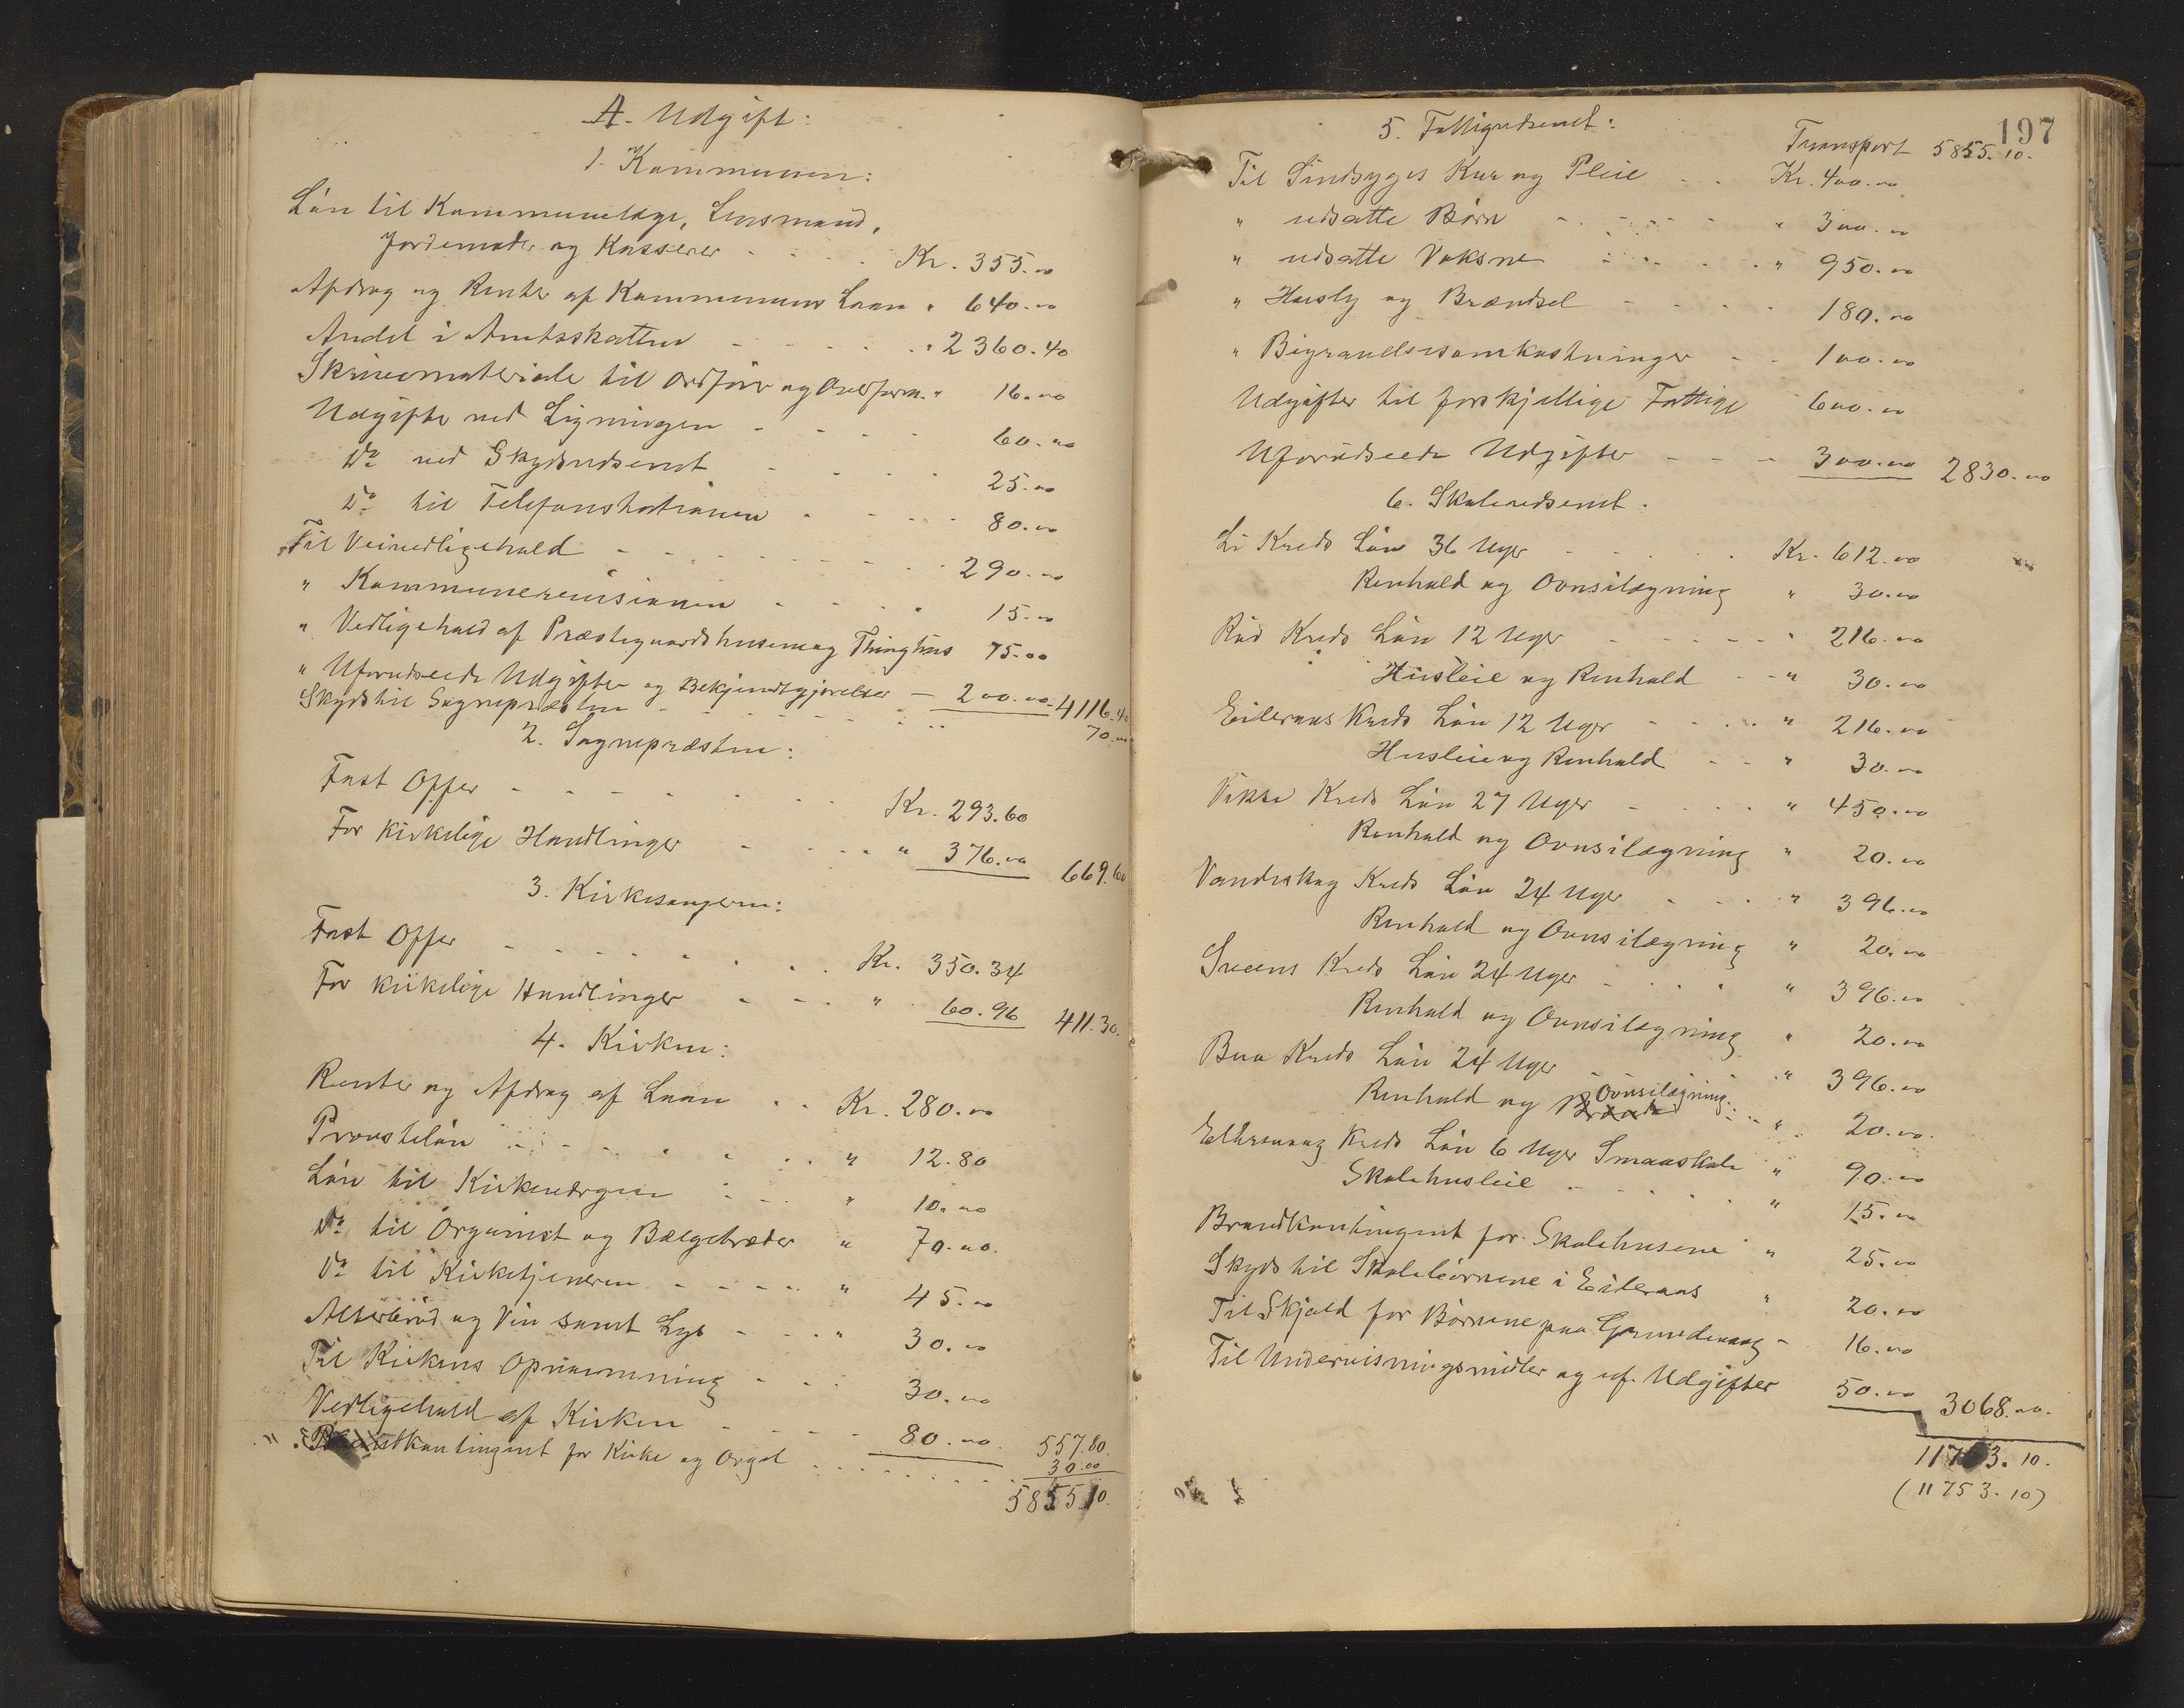 A. Udgift:
1. Kommunen:
Løn til Kommunelæge, Lensmand,
Jordemoder og Kasserer - - - - Kr. 355.00
Afdrag og Renter af Kommunens Laan " 640.00
Andel i Amtsskatten - - - - - " 2360.40
Skrivemateriale til Ordfører og Overform. " 16.00
Udgifter ved Ligningen - - - - 60.00
Do ved Skydsvæsenet - - - - 25.00
Do til Telefonstationen - - - - 80.00
Til Veivedligehold - - - - - - 290.00
" Kommunerevisionen - - - - 15.00
" Vedligehold af Præstegaardshusene og Thinghus 75.00
" Uforudseede Udgifter og Bekjendtgjørelser - 200.00 - 4116.40
Skyds til Sognepræsten - - - - - - 70.00
2. Sognepræsten:
Fast Offer - - - - - - - Kr. 293.60
For kirkelige Handlinger - - - - " 376.00 669.60
3. Kirkesangeren:
Fast Offer - - - - - - - Kr. 350.34
For kirkelige Handlinger - - - " 60.96 411.30.
4. Kirken:
Renter og Afdrag af Laan - - Kr. 280.00
Provsteløn - - - - - - - " 12.80
Løn til Kirkeværgen - - - " 10.00
Do til Organist og Bælgetræder " 70.00.
Do til Kirketjeneren - - - - - " 45.00
Alterbrød og Vin samt Lys - - - " 30.00
Til Kirkens Opvarmning - - - 30.00
Vedligehold af Kirken - - - - - 80.00. 557.80.
" Brandkontingent for Kirke og Orgel - - - - - - - 30.00
5855.10.
197
5. Fattigvæsenet: Transport 5855.10.
Til Sindsyges Kur og Pleie - - Kr. 400.00
" udsatte Børn - - - - - " 300.00
" udsatte Voksne - - - - - " 950.00
" Husly og Brændsel - - - - 180.00
" Begravelsesomkostninger - - 100.00
Udgifter til forskjellige Fattige 600.00
Uforudseede Udgifter - - - 300.00 2830.00
6. Skolevæsenet.
Li Kreds Løn 36 Uger - - - - - Kr. 612.00
Renhold og Ovnsilægning " 30.00
Rød Kreds Løn 12 Uger - - - - - " 216.00
Husleie og Renhold - - " 30.00
Eileraas Kreds Løn 12 Uger - - - - " 216.00
Husleie og Renhold - - " 30.00
Vikse Kreds Løn 27 Uger - - - - " 450.00
Renhold og Ovnsilægning " 20.00
Vandeskog Kreds Løn 24 Uger - - - - " 396.00
Renhold og Ovnsilægning " 20.00
Sveens Kreds Løn 24 Uger - - - - " 396.00
Renhold og Ovnsilægning " 20.00
Bua Kreds Løn 24 Uger - - - - " 396.00
Renhold og Ovnsilægning - - " 20.00.
Kreds Løn 6 Uger Smaaskole " 90.00
Skolehusleie - - - - - " 15.00
Brandkontingent for Skolehusene " 25.00
Skyds til Skolebørnene i Eileraas " 20.00
Til Skjøld for Børnene paa - 16.00
Til Undervisningsmidler og uf. Udgifter 50.00 3068.00.
11753.10.
(11753.10)